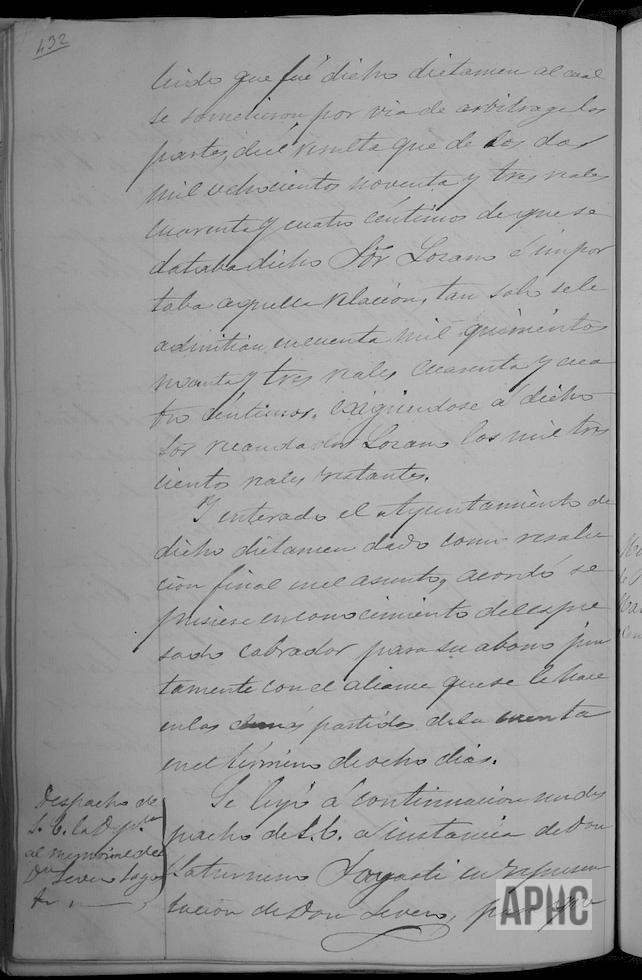 432
leido que fué dicho dictamen al cual
se sometieron por via de arbitrage las
partes, de él resulta que de los dos
mil ochocientos noventa y tres reales
cuarenta y cuatro céntimos de que se
databa dicho Sór Lozano é impor
taba aquella relación, tan solo se le
admitian en cuenta mil quinientos
noventa y tres reales cuarenta y cua
tro céntimos, exigiendose á dicho
Sor recaudador Lozano los mil tres
cientos reales restantes.
Y enterado el Ayuntamiento de
dicho dictamen dado como resolu
cion final en el asunto, acordó se
pusiese en conocimiento del espre
sado cobrador para su abono jun
tamente con el alcance que se le hace
en las demás partidas de su cuenta
en el término de ocho dias.
Despacho de
S. E. la Dip.on
al memorial de
Dn Severo Sagas
ti.
Se leyó á continuacion un des
pacho de S.E. a instancia de Don
Saturnino Sagasti en represen
tacion de Don Severo, para que
APHC